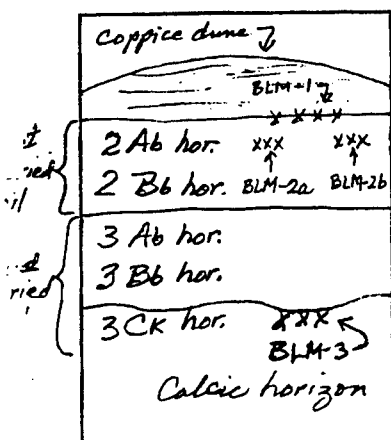 Coppice dune
BLM-1
2 Ab hor. xxx xxx
2 Bb hor. BLM-2a BLM-2b
3 Ab hor.
3 Bb hor.
3 CK hor. xxx
BLM-3
Calcic horizon